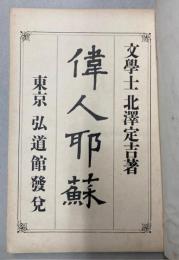 文學士 北澤定吉著
偉人耶蘇
東京 弘道館發兌